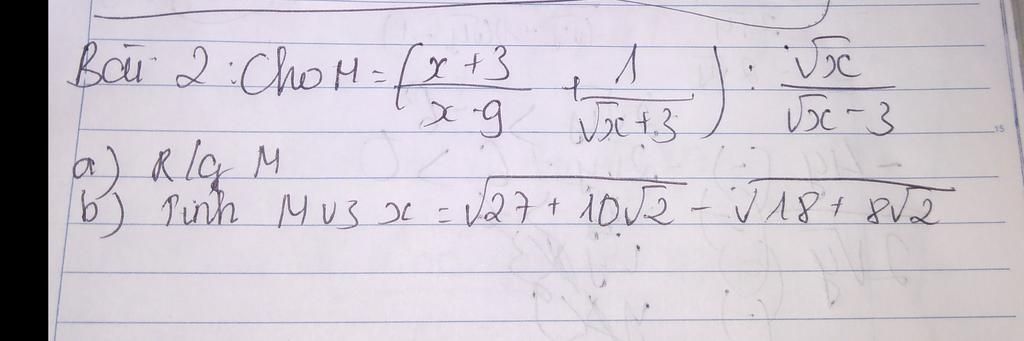 Bài 2: Cho M = (x+3 / x-9 + 1 / √x+3) : √x / √x-3
a) R/g M
b) Tính M v3 x = √27+10√2 - √18+8√2
15